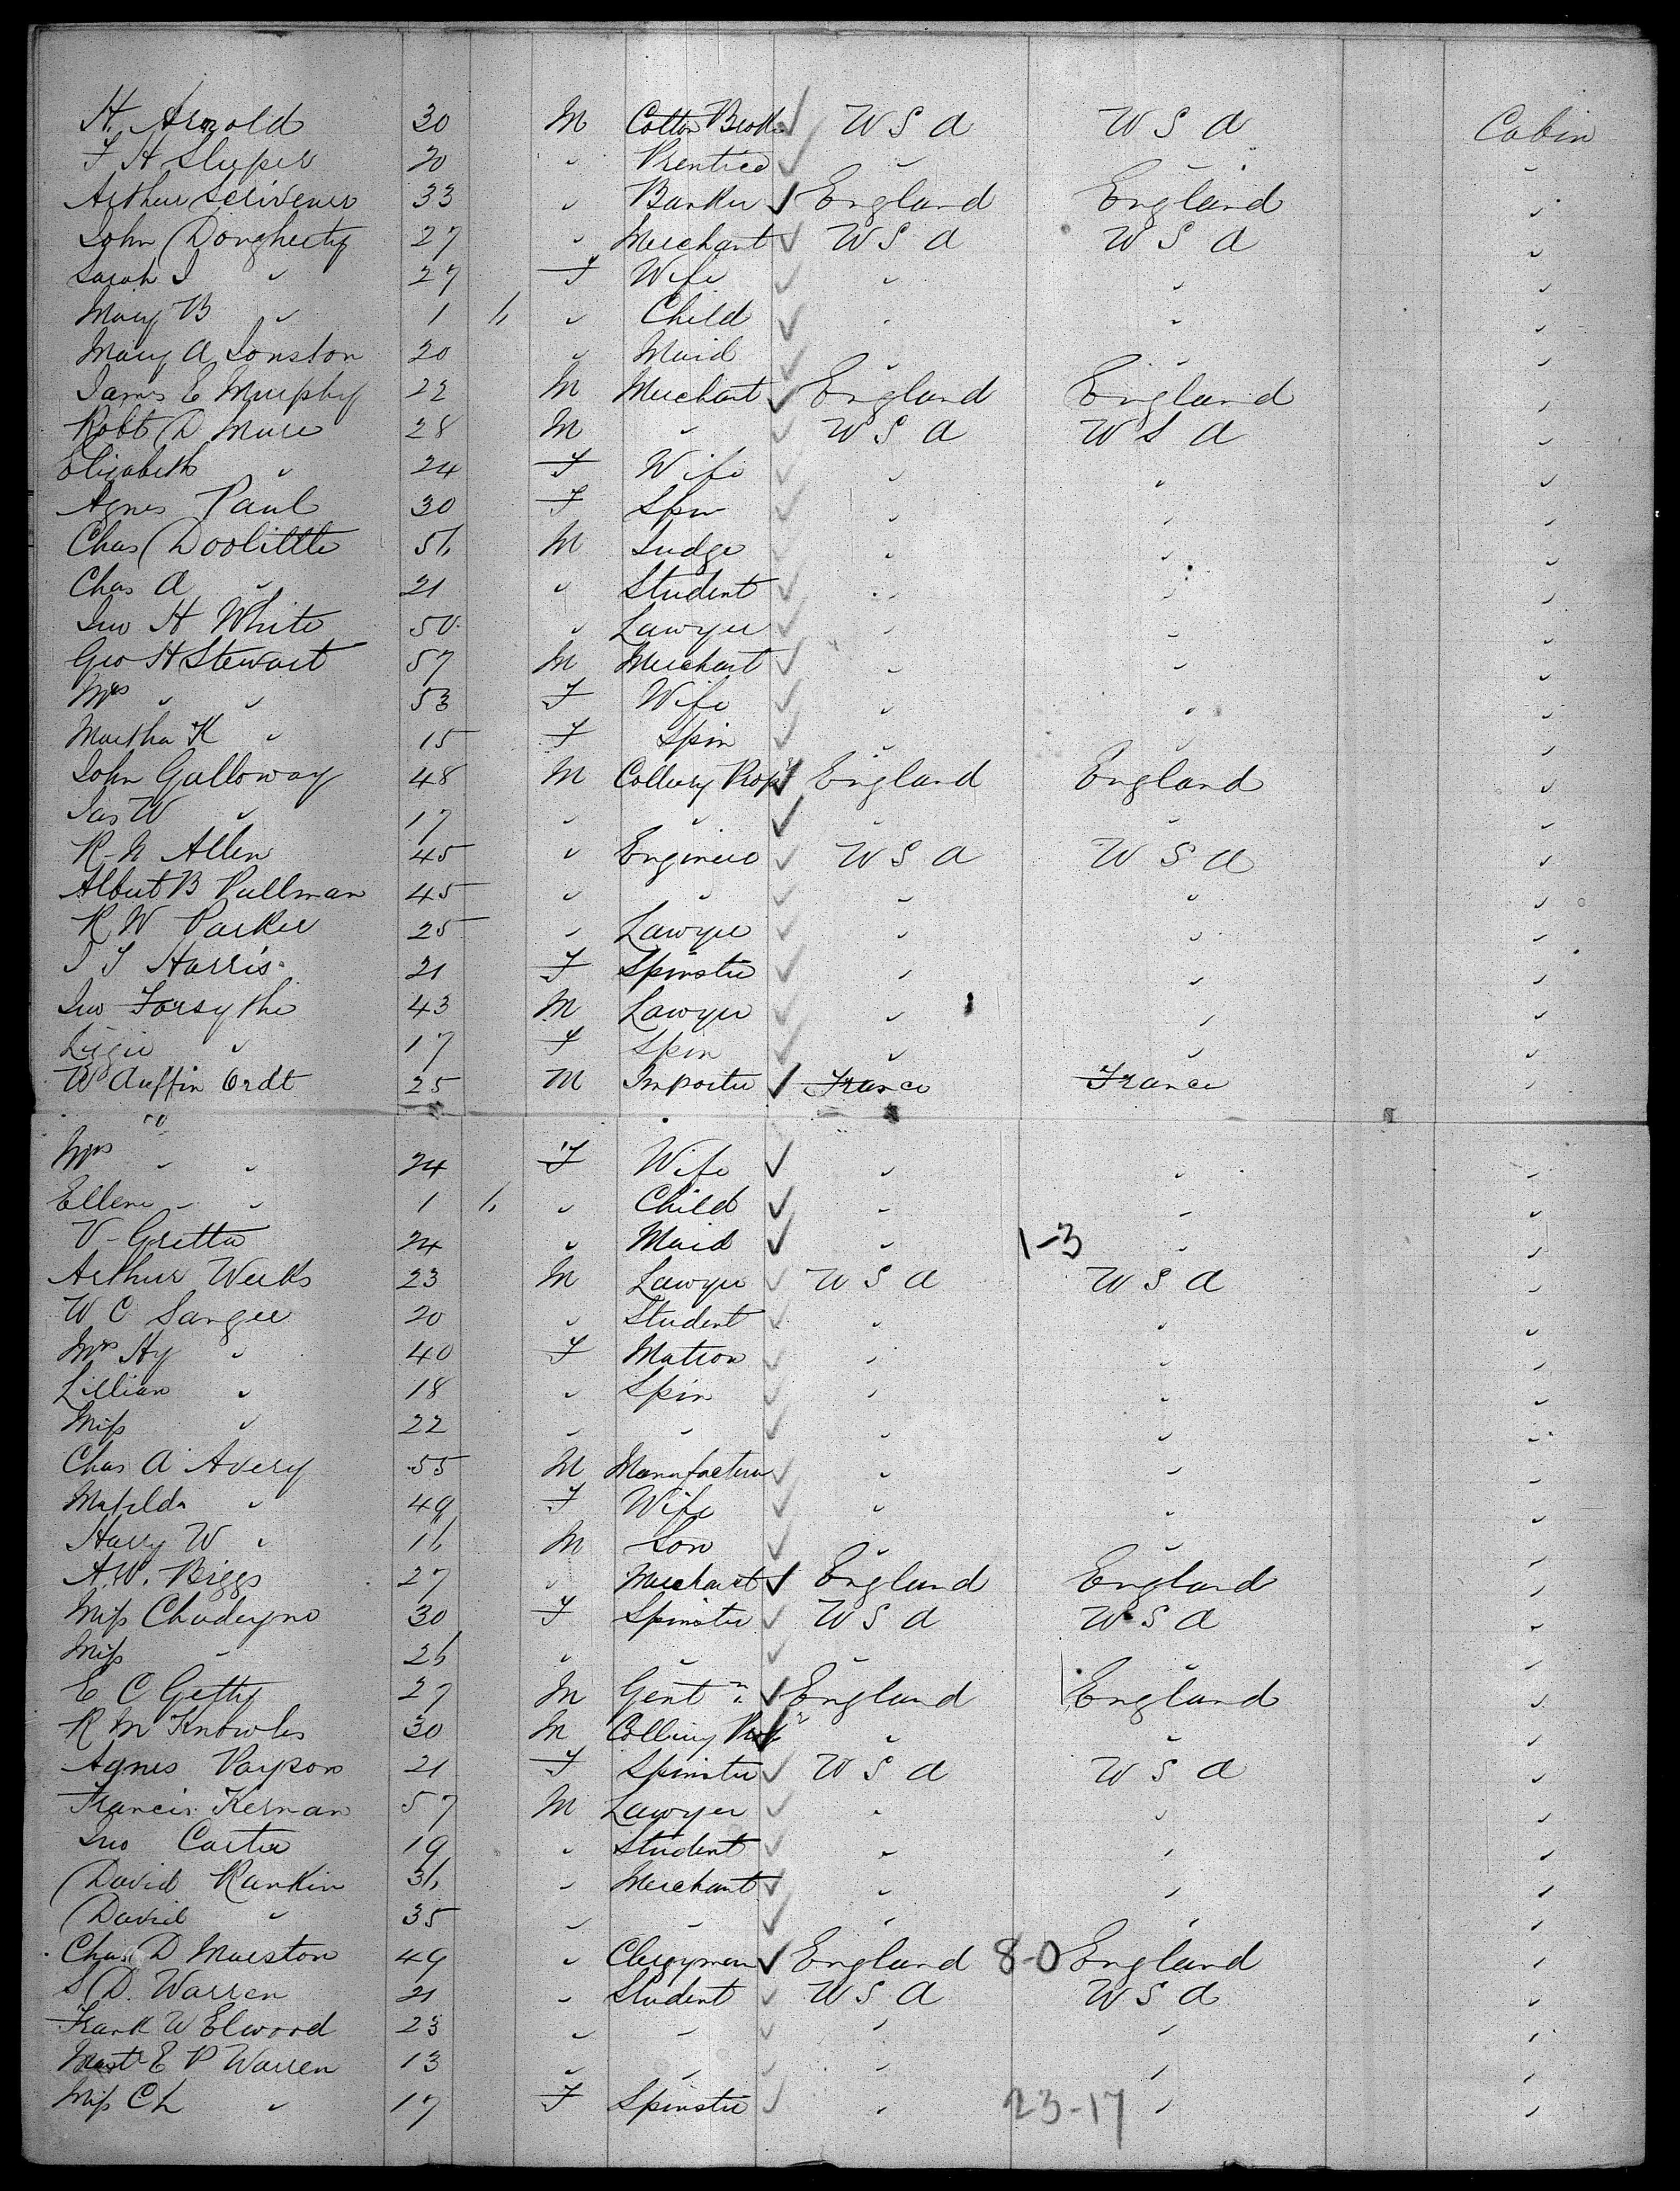 H. Arnold 30 M Cotton Brok U S A U S A Cabin
F H Sleeper 20 " Prentice " " "
Arthur Scrivener 33 " Banker England England "
John Dougherty 27 " Merchant U S A U S A "
Sarah J " 27 F Wife " " "
Mary B " 1 6 " Child " " "
Mary A Jonston 20 " Maid " " "
James E Murphy 22 M Merchant England England "
Robt D Mure 28 M " U S A U S A "
Elizabeth " 24 F Wife " " "
Agnes Paul 30 F Spin " " "
Chas Doolittle 56 M Judge " " "
Chas A " 21 " Student " " "
Jno H White 50 " Lawyer " " "
Geo H Stewart 57 M Merchant " " "
Mrs " " 53 F Wife " " "
Martha K " 15 F Spin " " "
John Galloway 48 M Colliery Propr England England "
Jas W " 17 " " " " "
R. N Allen 45 " Engineer U S A U S A "
Albert B Pullman 45 " " " " "
R W Parker 25 " Lawyer " " "
J T Harris 21 F Spinster " " "
Jno Forsythe 43 M Lawyer " " "
Lizzie " 17 F Spin " " "
W Auffm Ordt 25 M Importer France France "
"
Mrs " " 24 F Wife " " "
Ellen " " 1 6 " Child " " "
V. Gretta 24 " Maid " 1-3 " "
Arthur Weeks 23 M Lawyer U S A U S A "
W C Sanger 20 " Student " " "
Mrs Hy " 40 F Matron " " "
Lillian " 18 " Spin " " "
Miss " 22 " " " " "
Chas A Avery 55 M Manufacturer " " "
Matilda " 49 F Wife " " "
Harry W " 16 M Son " " "
A.W. Biggs 27 " Merchant England England "
Miss Chadeyne 30 F Spinster U S A U S A "
Miss " 26 " " " " "
E C Getty 27 M Gentn England England "
R M Knowles 30 M Colliery Propr " " "
Agnes Payson 21 F Spinster U S A U S A "
Francis Kernan 57 M Lawyer " " "
Jno Carter 19 " Student " " "
David Rankin 36 " Merchant " " "
David " 35 " " " " "
Chas D Marston 49 " Clergyman England 8-0 England "
S D. Warren 21 " Student U S A U S A "
Frank W Elwood 23 " " " " "
Mastr E P Warren 13 " " " " "
Miss C L " 17 F Spinster " 23-17 " "